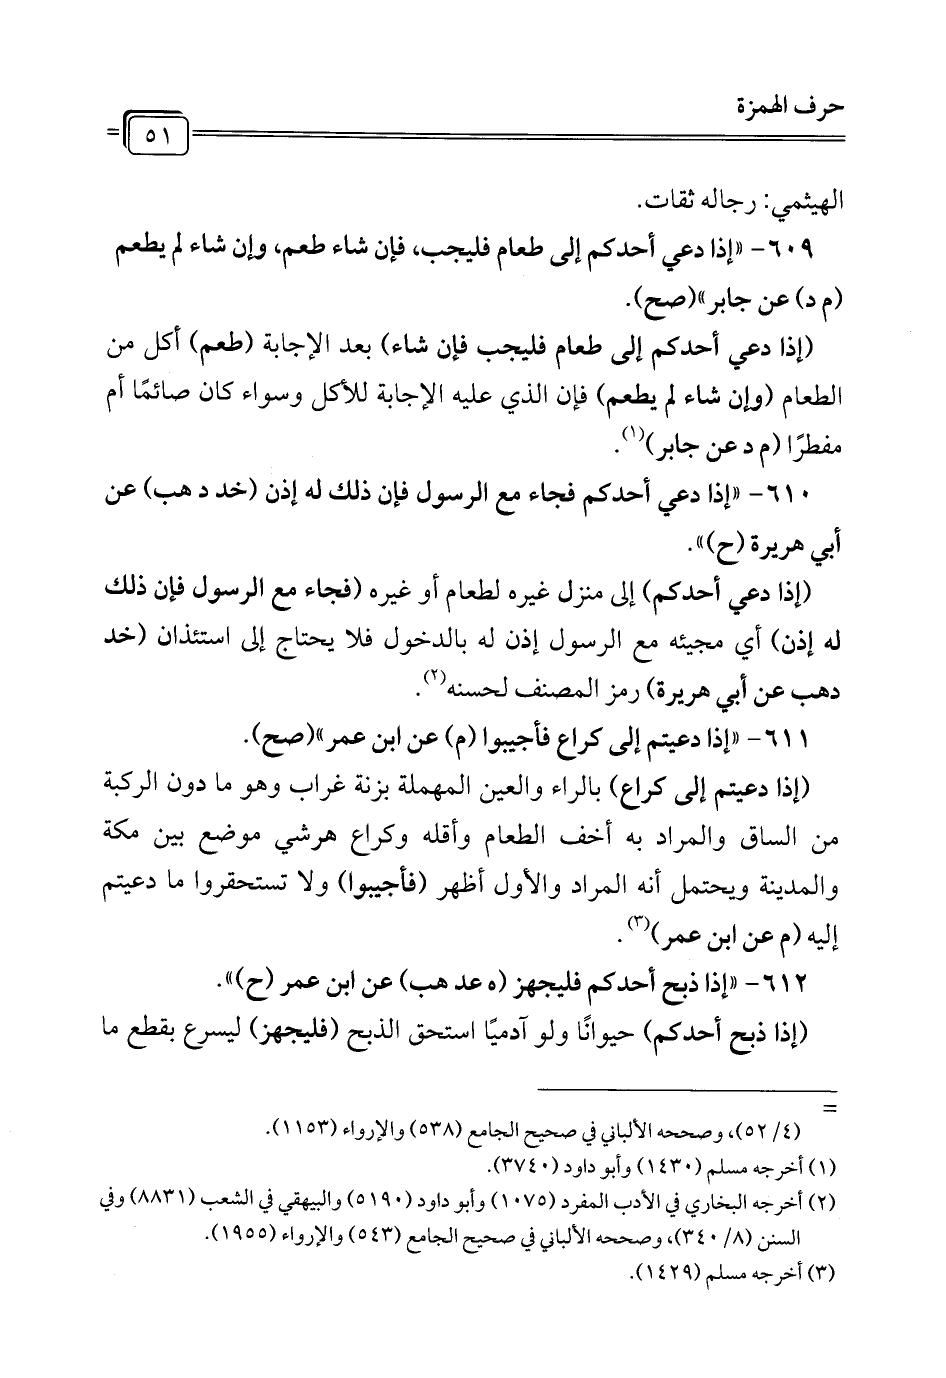 حرف الهمزة
= ٥١
الهيثمي: رجاله ثقات.
٦٠٩- «إذا دعي أحدكم إلى طعام فليجب، فإن شاء طعم، وإن شاء لم يطعم
(م د) عن جابر»(صح).
(إذا دعي أحدكم إلى طعام فليجب فإن شاء) بعد الإجابة (طعم) أكل من
الطعام (وإن شاء لم يطعم) فإن الذي عليه الإجابة للأكل وسواء كان صائمًا أم
مفطرًا (م د عن جابر)(١).
٦١٠- «إذا دعي أحدكم فجاء مع الرسول فإن ذلك له إذن (خد د هب) عن
أبي هريرة (ح)».
(إذا دعي أحدكم) إلى منزل غيره لطعام أو غيره (فجاء مع الرسول فإن ذلك
له إذن) أي مجيئه مع الرسول إذن له بالدخول فلا يحتاج إلى استئذان (خد
دهب عن أبي هريرة) رمز المصنف لحسنه(٢).
٦١١- «إذا دعيتم إلى كراع فأجيبوا (م) عن ابن عمر»(صح).
(إذا دعيتم إلى كراع) بالراء والعين المهملة بزنة غراب وهو ما دون الركبة
من الساق والمراد به أخف الطعام وأقله وكراع هرشي موضع بين مكة
والمدينة ويحتمل أنه المراد والأول أظهر (فأجيبوا) ولا تستحقروا ما دعيتم
إليه (م عن ابن عمر)(٣).
٦١٢- «إذا ذبح أحدكم فليجهز (ه عد هب) عن ابن عمر (ح)».
(إذا ذبح أحدكم) حيوانًا ولو آدميًا استحق الذبح (فليجهز) ليسرع بقطع ما
=
(٤/ ٥٢)، وصححه الألباني في صحيح الجامع (٥٣٨) والإرواء (١١٥٣).
(١) أخرجه مسلم (١٤٣٠) وأبو داود (٣٧٤٠).
(٢) أخرجه البخاري في الأدب المفرد (١٠٧٥) وأبو داود (٥١٩٠) والبيهقي في الشعب (٨٨٣١) وفي
السنن (٨/ ٣٤٠)، وصححه الألباني في صحيح الجامع (٥٤٣) والإرواء (١٩٥٥).
(٣) أخرجه مسلم (١٤٢٩).